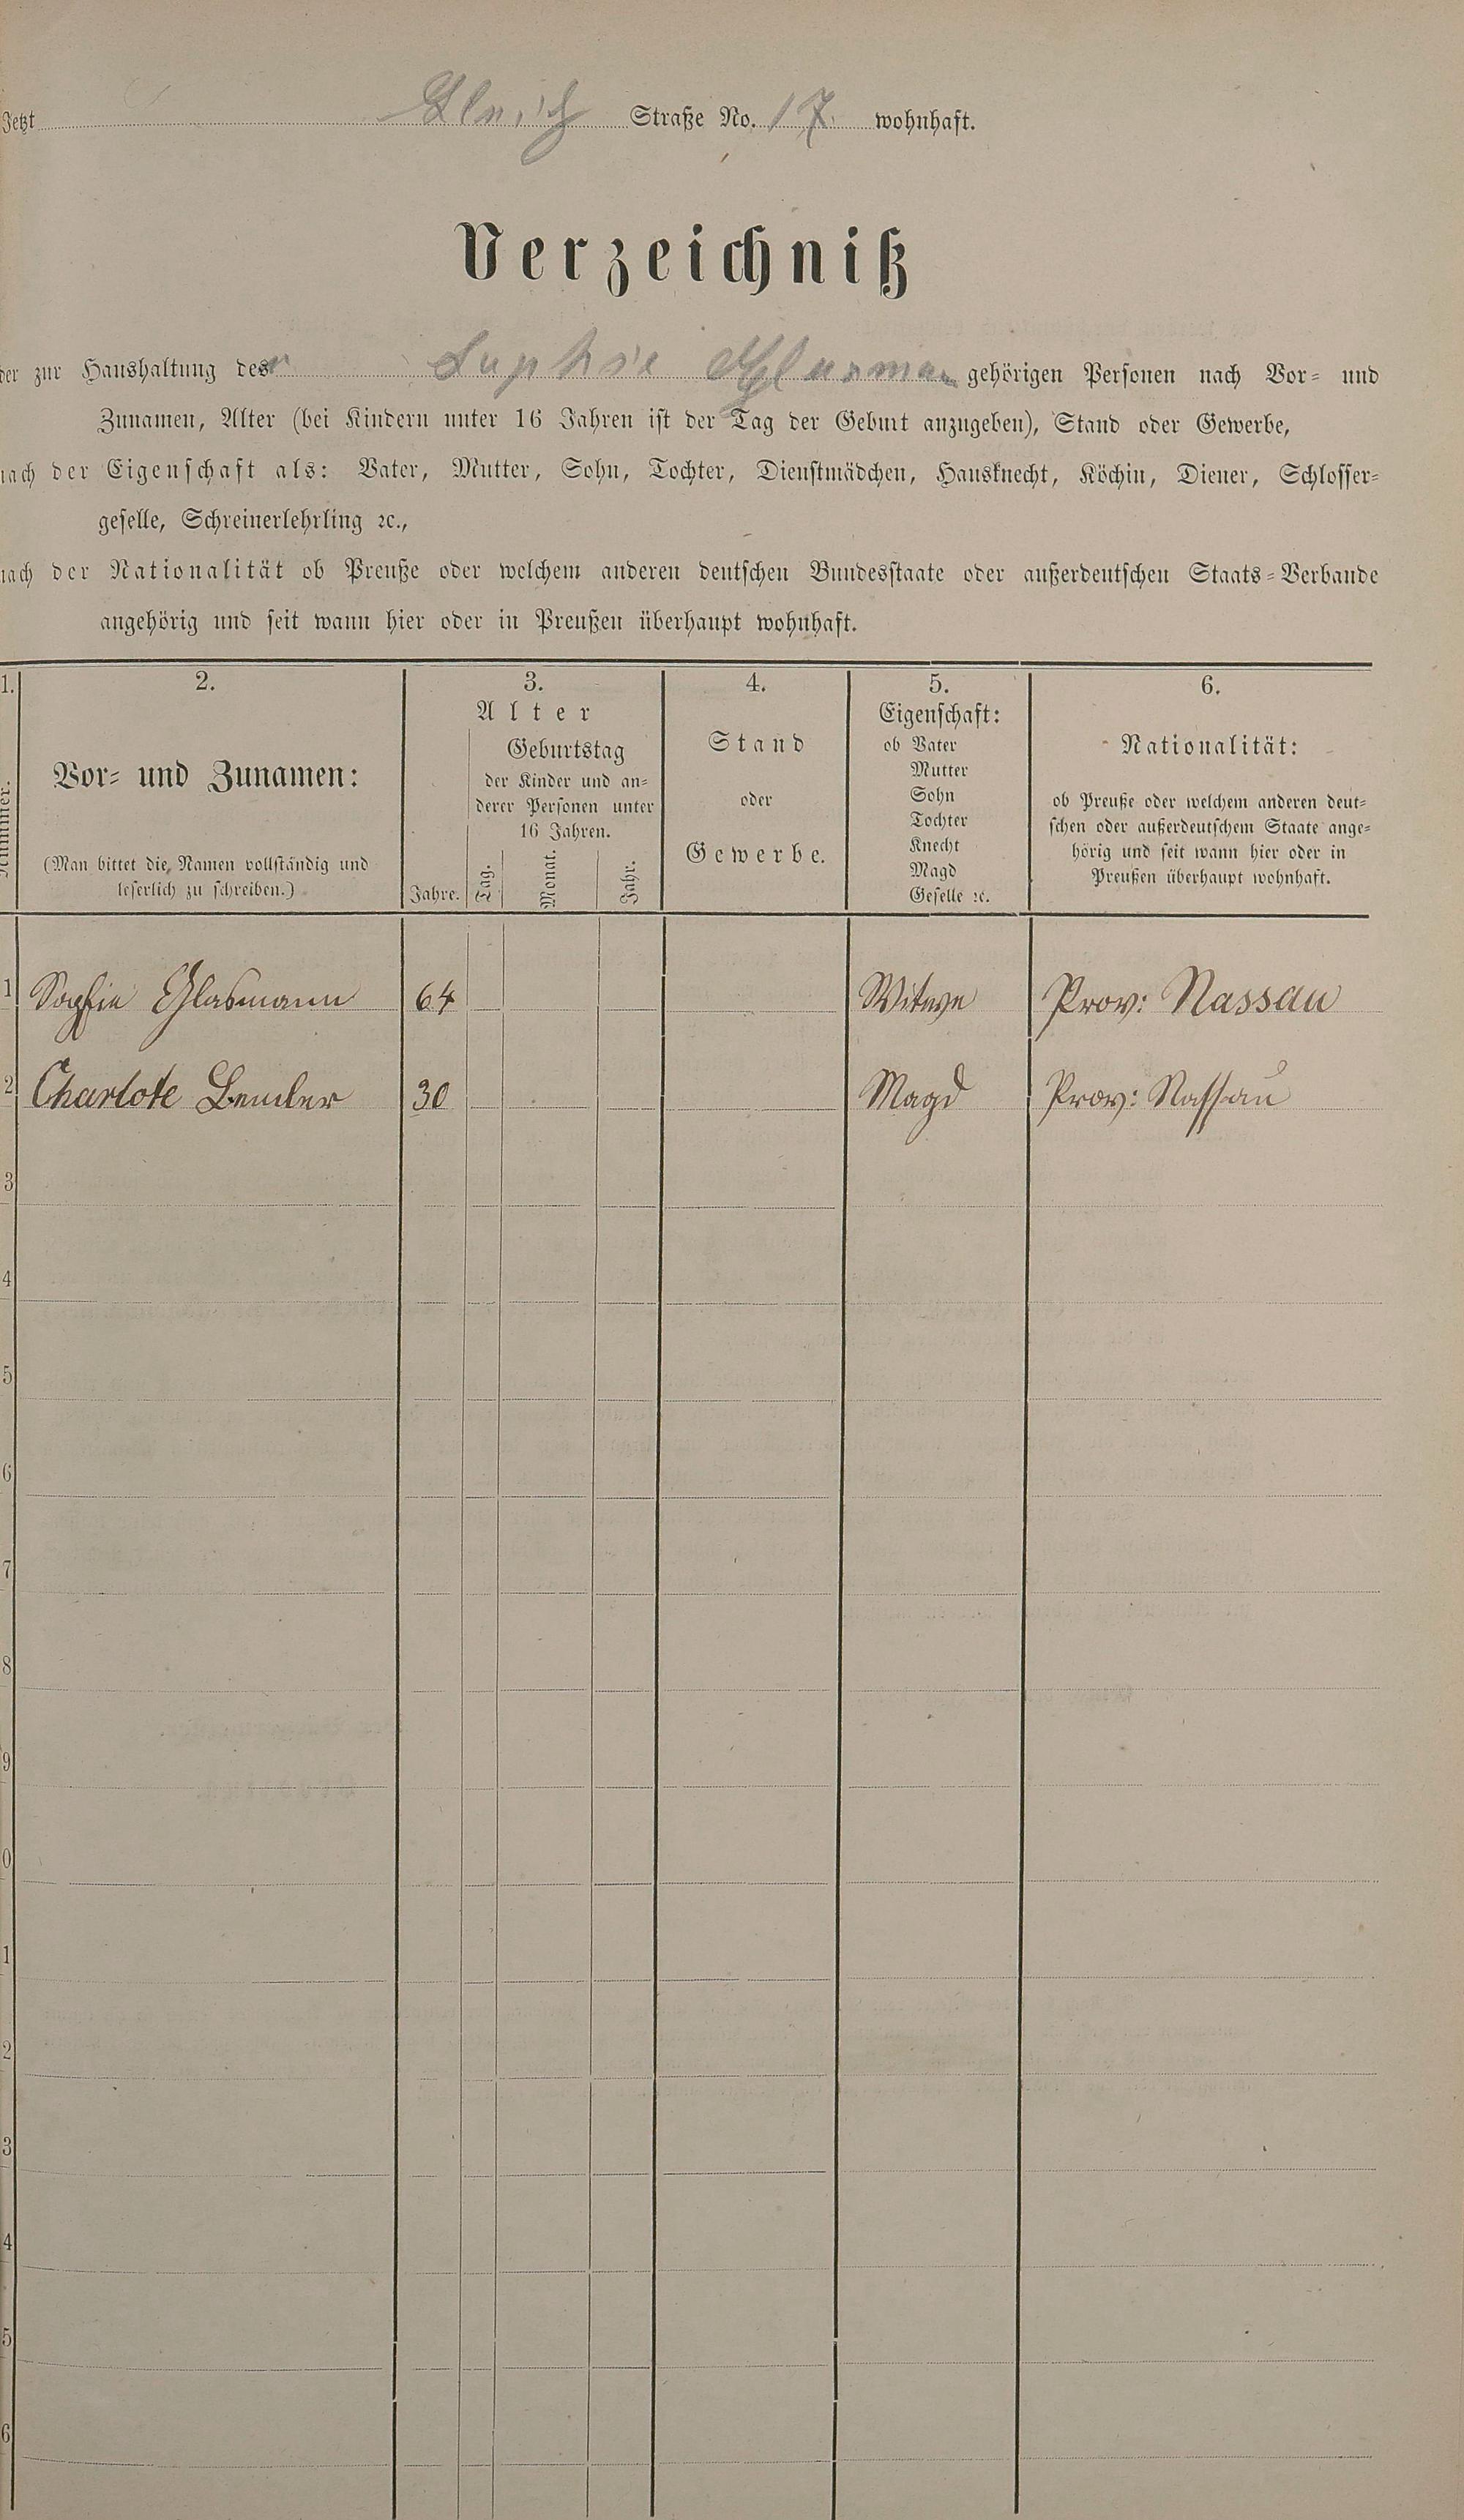 Jetzt Straße No. 17. wohnhaft.
Verzeichniß
der zur Haushaltung der Sophie Glasmann gehörigen Personen nach Vor- und
Zunamen, Alter (bei Kindern unter 16 Jahren ist der Tag der Geburt anzugeben), Stand oder Gewerbe,
nach der Eigenschaft als: Vater, Mutter, Sohn, Tochter, Dienstmädchen, Hausknecht, Köchin, Diener, Schlosser-
geselle, Schreinerlehrling ꝛc.,
nach der Nationalität ob Preuße oder welchem anderen deutschen Bundesstaate oder außerdeutschen Staats-Verbande
angehörig und seit wann hier oder in Preußen überhaupt wohnhaft.
1.
Nummer.
2.
Vor- und Zunamen:
(Man bittet die Namen vollständig und
leserlich zu schreiben.)
3.
Alter
Jahre.
Geburtstag
der Kinder und an-
derer Personen unter
16 Jahren.
Tag. Monat. Jahr.
4.
Stand
oder
Gewerbe.
5.
Eigenschaft:
ob Vater
Mutter
Sohn
Tochter
Knecht
Magd
Geselle ꝛc.
6.
Nationalität:
ob Preuße oder welchem anderen deut-
schen oder außerdeutschem Staate ange-
hörig und seit wann hier oder in
Preußen überhaupt wohnhaft.
1 Sophie Glasmann 64 Witwe Prov: Nassau
2 Charlote 30 Magd Prov: Nassau
3
4
5
6
7
8
9
0
1
2
3
4
5
6